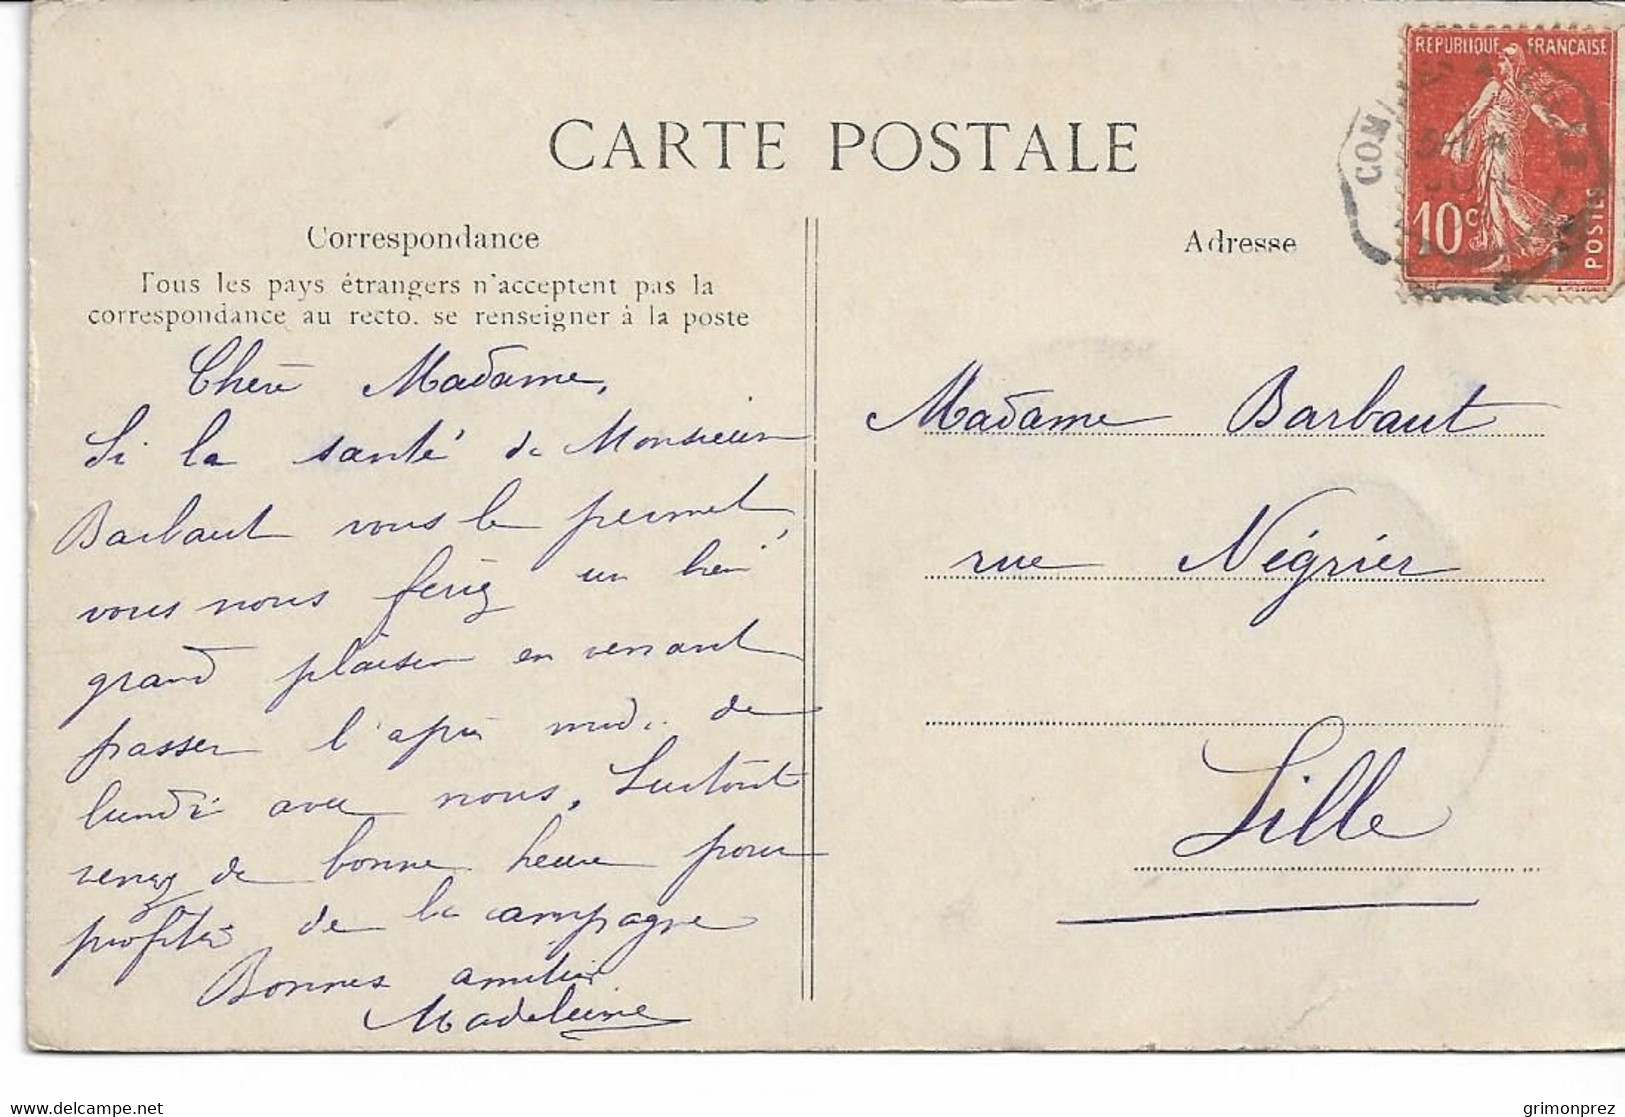 CARTE POSTALE
Correspondance
Tous les pays étrangers n'acceptent pas la
correspondance au recto. se renseigner à la poste
Chère Madame,
Si la santé de Monsieur
Barbaut vous le permet,
vous nous feriez un bien
grand plaisir en venant
passer l'après midi de
lundi avec nous. Surtout
venez de bonne heure pour
profiter de la campagne
Bonnes amitiés
Madeleine
Adresse
Madame Barbaut
rue Négrier
Lille
REPUBLIQUE FRANÇAISE
10c
POSTES
COM
grimonprez